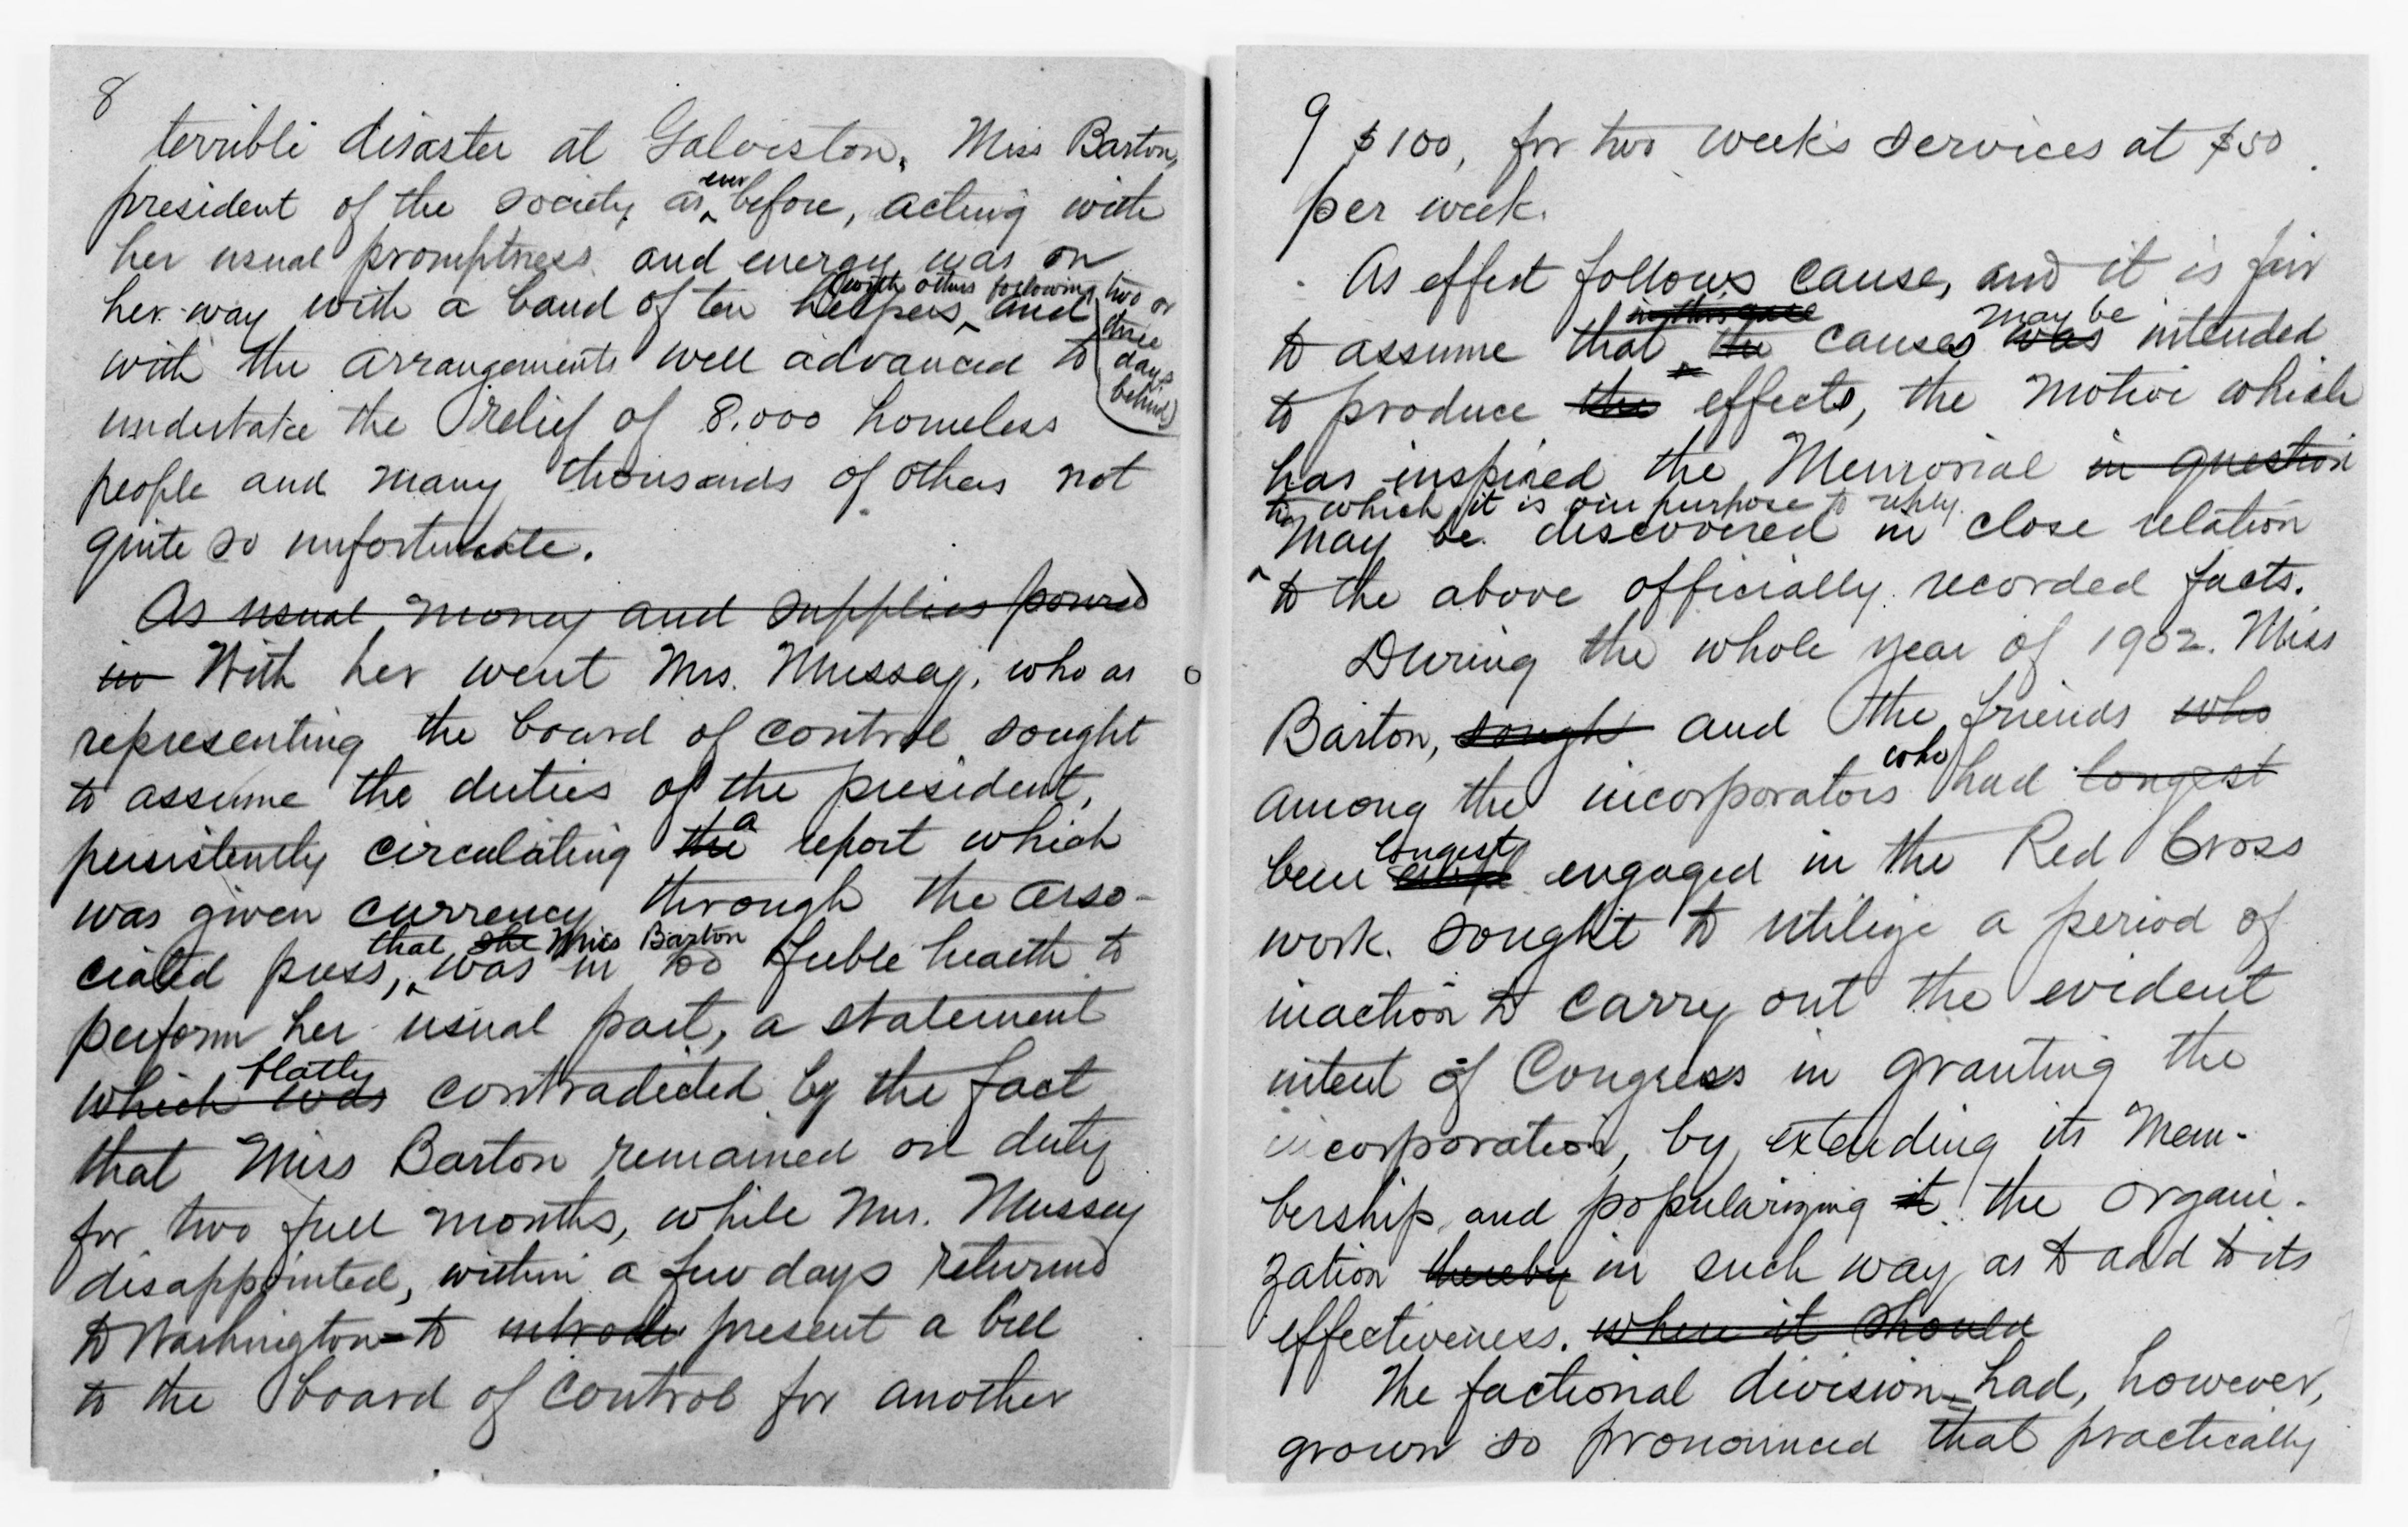 8
terrible disaster at Galveston, Miss Barton,
president of the society as ever before, acting with
her usual promptness and energy was on
her way with a band of ten helpers, (with others following two or three days behind) and
with the arrangements well advanced to
undertake the relief of 8.000 homeless
people and many thousands of others not
quite so unfortunate.
As usual money and supplies poured
in With her went Mrs. Mussey, who as
representing the board of control sought
to assume the duties of the president,
persistently circulating the a report which
was given currency through the asso-
ciated press, that she Miss Barton was in too feeble health to
perform her usual part, a statement
which was flatly contradicted by the fact
that Miss Barton remained on duty
for two full months, while Mrs. Mussey
disappointed, within a few days returned
to Washington - to introdu present a bill
to the board of control for another
9
$100, for two week's services at $50
per week.
As effect follows cause, and it is fair
to assume that in this case the causes was may be intended
to produce the effects, the motive which
has inspired the Memorial in question
to which it is our purpose to reply.
may be discovered in close relation
to the above officially recorded facts.
During the whole year of 1902. Miss
Barton, sough and the friends who
among the incorporators who had longest
been longest engaged in the Red Cross
work. sought to utilize a period of
inaction to carry out the evident
intent of Congress in granting the
incorporation, by extending its mem-
bership and popularizing it the organi-
zation thereby in such way as to add to its
effectiveness. when it should
The factional division had, however,
grown so pronounced that practically